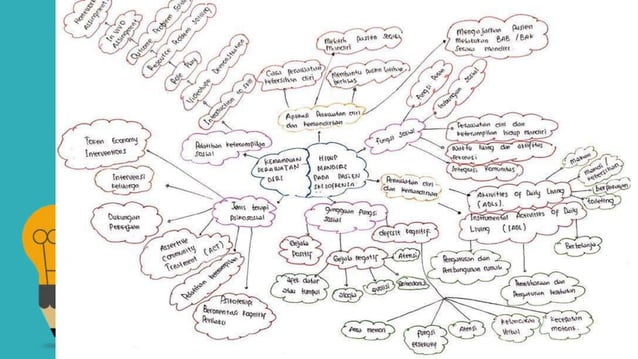 In VIVO
Assignment
Outcome Problem Solving
Resource Problem Solving
Role Play
Videotape Demonstration
Introduction to
Pelatihan keterampilan
Sosial
Melatih pasien secara
Mandiri
Cara perawatan
kebersihan diri
Membantu pasien latihan
Aplikasi Perawatan diri
dan kemandirian
Mengajarkan pasien
Melakukan BAB / BAK
secara mandiri
Fungsi Sosial
Fungsi Peran
Hubungan Sosial
Perawatan diri dan
keterampilan hidup mandiri
Waktu luang dan aktivitas
rekreasi
Integrasi Komunitas
KEMAMPUAN
PERAWATAN
DIRI
HIDUP
MANDIRI
PADA PASIEN
SKIZOFRENIA
Perawatan diri
dan kemandirian
Activities of Daily Living
(ADLs).
Makan
Mandi /
kebersihan
berpakaian
toileting
Instrumental Activities of Daily
Living (IADL)
Berbelanja
Pengurusan dan
Pembangunan rumah
Pemeliharaan dan
Pengurusan kesehatan
Jenis terapi
Psikososial
Token Economy
Interventions
Intervensi
keluarga
Dukungan
Pekerjaan
Assertive
Community
Treatment (ACT)
Pelatihan keterampilan
Psikoterapi
Berorientasi Kognitif
Perilaku
Gangguan fungsi
Sosial
Gejala
Positif
Gejala negatif
Afek datar
atau tumpul
alogia
avolisi
Anhedonia
Atensi
deficit kognitif
Area memori
Fungsi
eksekutif
Atensi
Kelancaran
Verbal
Kecepatan
motorik.